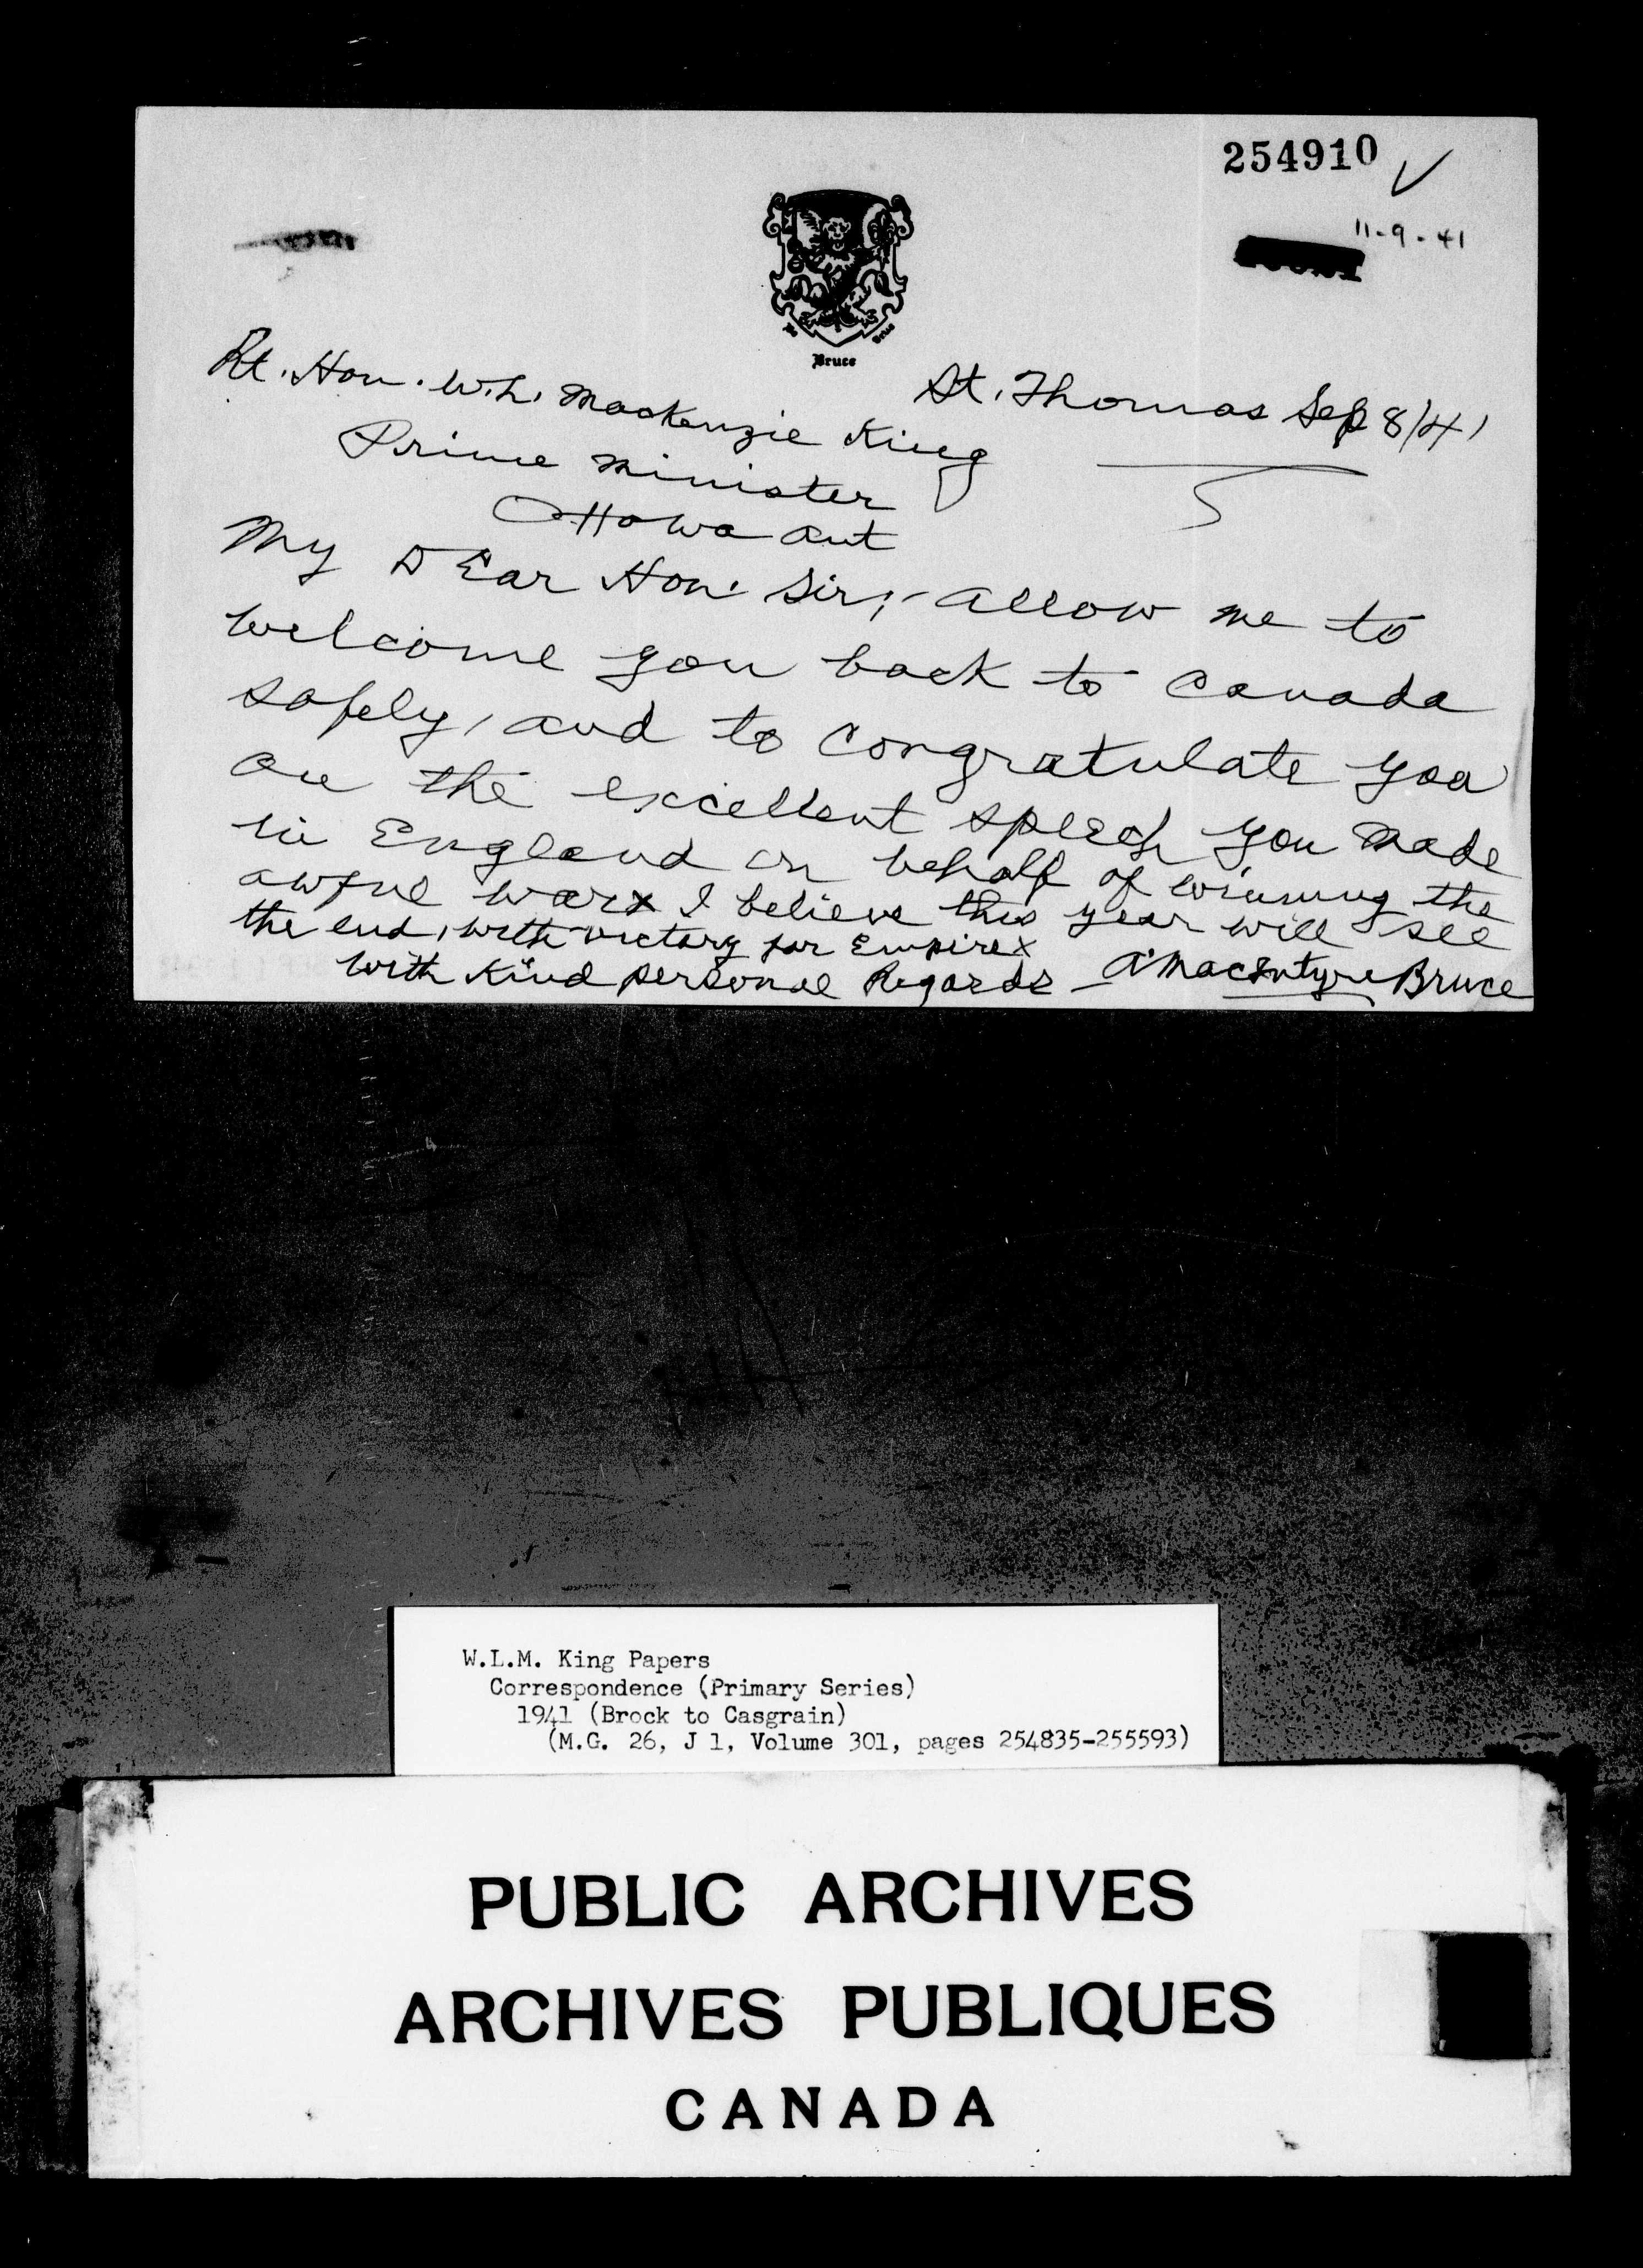 254910
11-9-41
Bruce
St. Thomas Sep 8/41
Rt. Hon. W.L. Mackenzie King
Prime Minister
Ottawa Ont
My DEar Hon. Sir;- allow me to
welcome you back to Canada
safely, and to congratulate you
on the excellent speech you made
in England on behalf of winning the
awful war x I believe this year will see
the end, with victory for Empire x
with kind personal Regards - A. MacIntyre Bruce
W.L.M. King Papers
Correspondence (Primary Series)
1941 (Brock to Casgrain)
(M.G. 26, J 1, Volume 301, pages 254835-255593)
PUBLIC ARCHIVES
ARCHIVES PUBLIQUES
CANADA